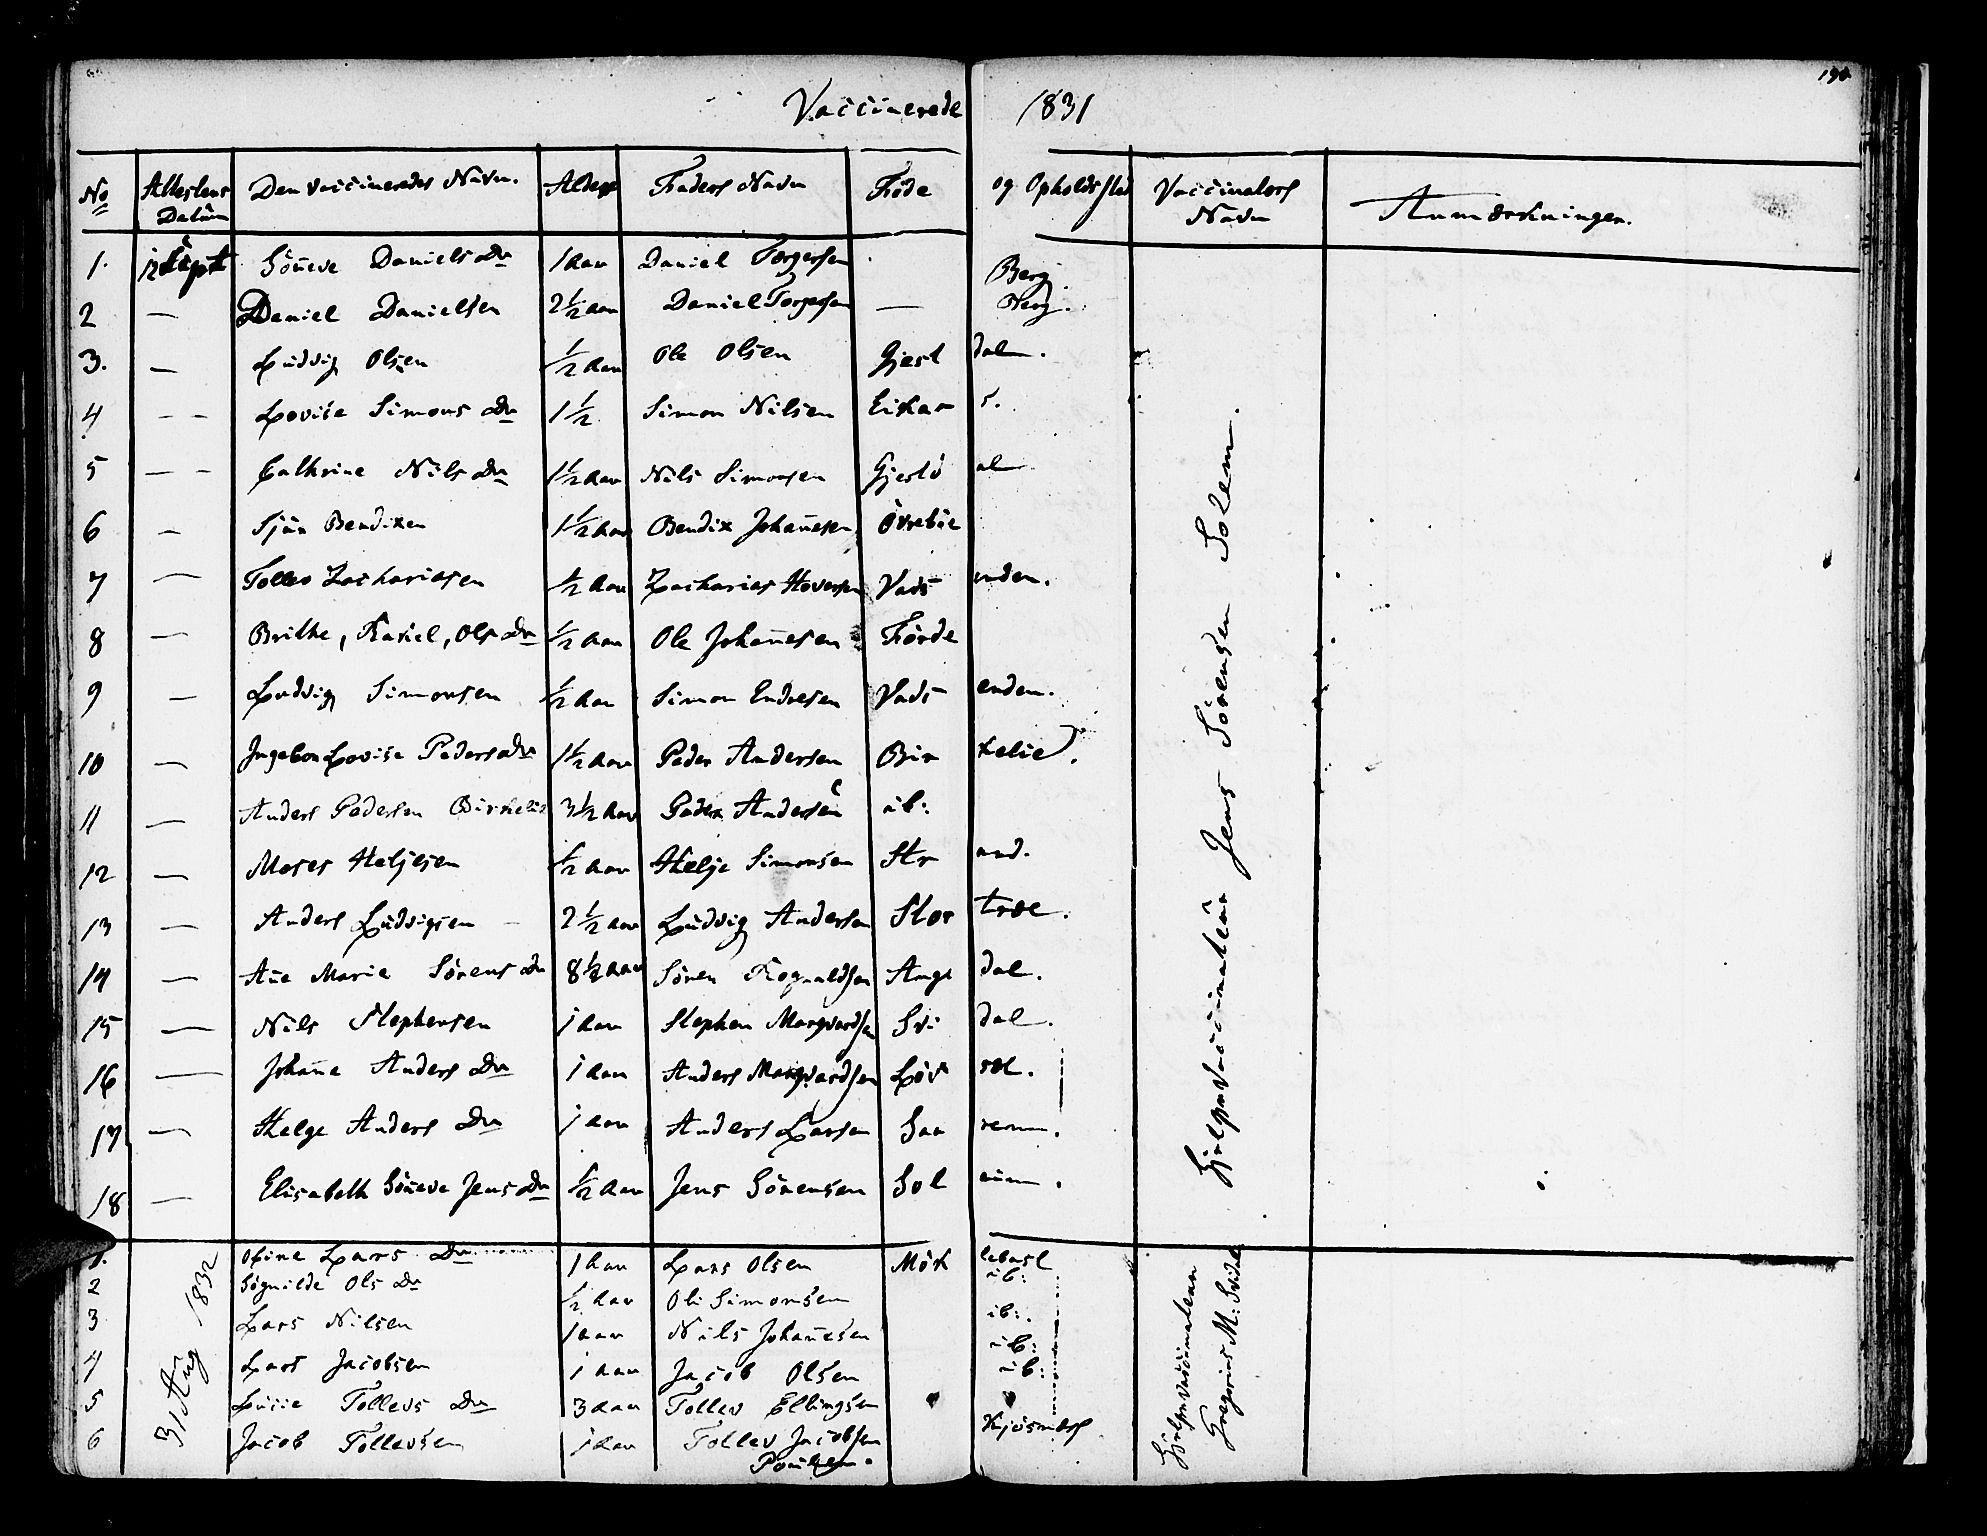 190
Vaccinerede 1831
No Attestens Datum Den Vaccineredes Navn. Alder Faders Navn Føde og Opholdssted Vaccinators Navn Anmærkninger.
1. 12 Sept Söneve Daniels Dr 1 Aar Daniel Torgersen Berg
2 — Daniel Danielsen 2½ Aar Daniel Torgersen — Berg.
3. — Ludvig Olsen ½ Aar Ole Olsen Gjesdal.
4 — — Lovise Simons Dr 1½ Simon Nilsen Eikaas.
5 — — Cathrine Nils Dr 1½ Aar Nils Simonsen Gjesdal
6 — Bendixen 1½ Aar Bendix Johannesen Övreböe
7 — Tollev Zachariesen ½ Aar Zacharies Hoversen Vadsenden.
8 — Brithe, Rakel, Ols Dr ½ Aar Ole Johannesen Förde
9 — Ludvig Simonsen ½ Aar Simon Endresen Vadsenden.
10 — Ingebor Lovise Peders Dr 1½ Aar Peder Andersen Birkelie.
11 — Anders Pedersen Birkelie 3½ Aar Peder Andersen ib:
12 — Moses Heljesen ½ Aar Helje Simonsen Strand.
13 — Anders Ludvigsen 2½ Aar Ludvig Andersen Stortræe.
14 — Ane Marie Sörens Dr 8½ Aar Sören Rognaldsen Angedal.
15 — Nils Stephensen 1 Aar Stephen Marqvardsen Svidal.
16 — Johanne Anders Dr 1 Aar Anders Marqvardsen
17 — Helge Anders Dr 1 Aar Anders Larsen
18 — Elisabeth Söneve Jens Dr ½ Aar Jens Sörensen Soleim.
Hjelpevaccinateur Jens Sörensen Solem.
31 Aug 1832
1. Oline Lars Dr 1 Aar Lars Olsen Mörklebost
2 Sögnilde Ols Dr ½ Aar Ole Simonsen ib:
3 Lars Nilsen 1 Aar Nils Johannesen ib:
4 Lars Jacobsen 1 Aar Jacob Olsen ib:
5 Lucie Tollevs Dr 3 Aar Tollev Ellingsen ib:
6 Jacob Tollevsen 1 Aar Tollev Jacobsen Kjösnæs
Hjelpevaccinateur
Gregorius M: Svidal